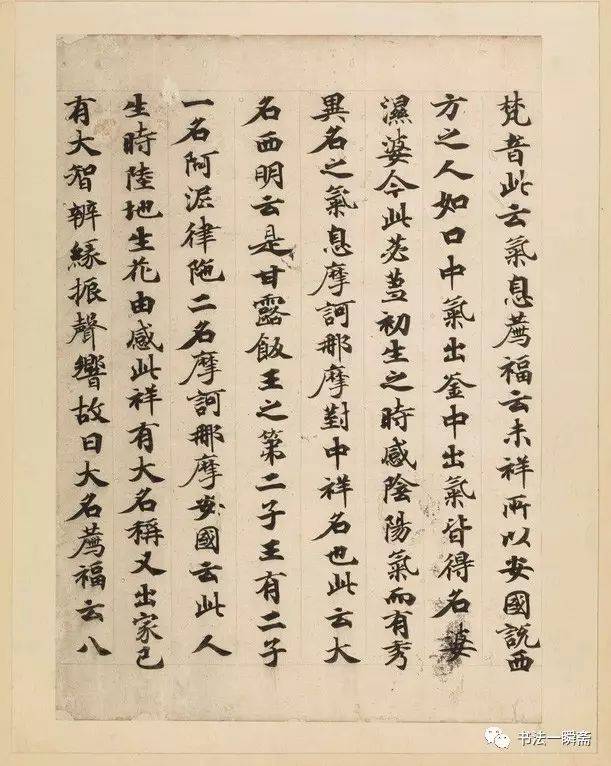 梵音此云氣息薦福云未祥所以安國說西
方之人如口中氣出釜中出氣皆得名婆
濕婆今此苾蒭初生之時感陰陽氣而有秀
異名之氣息摩訶那摩對中祥名也此云大
名西明云是甘露飯王之第二子王有二子
一名阿泥律陁二名摩訶那摩安國云此人
生時陸地生花由感此祥有大名稱又出家已
有大智辨緣振聲響故曰大名薦福云八
书法一瞬斋